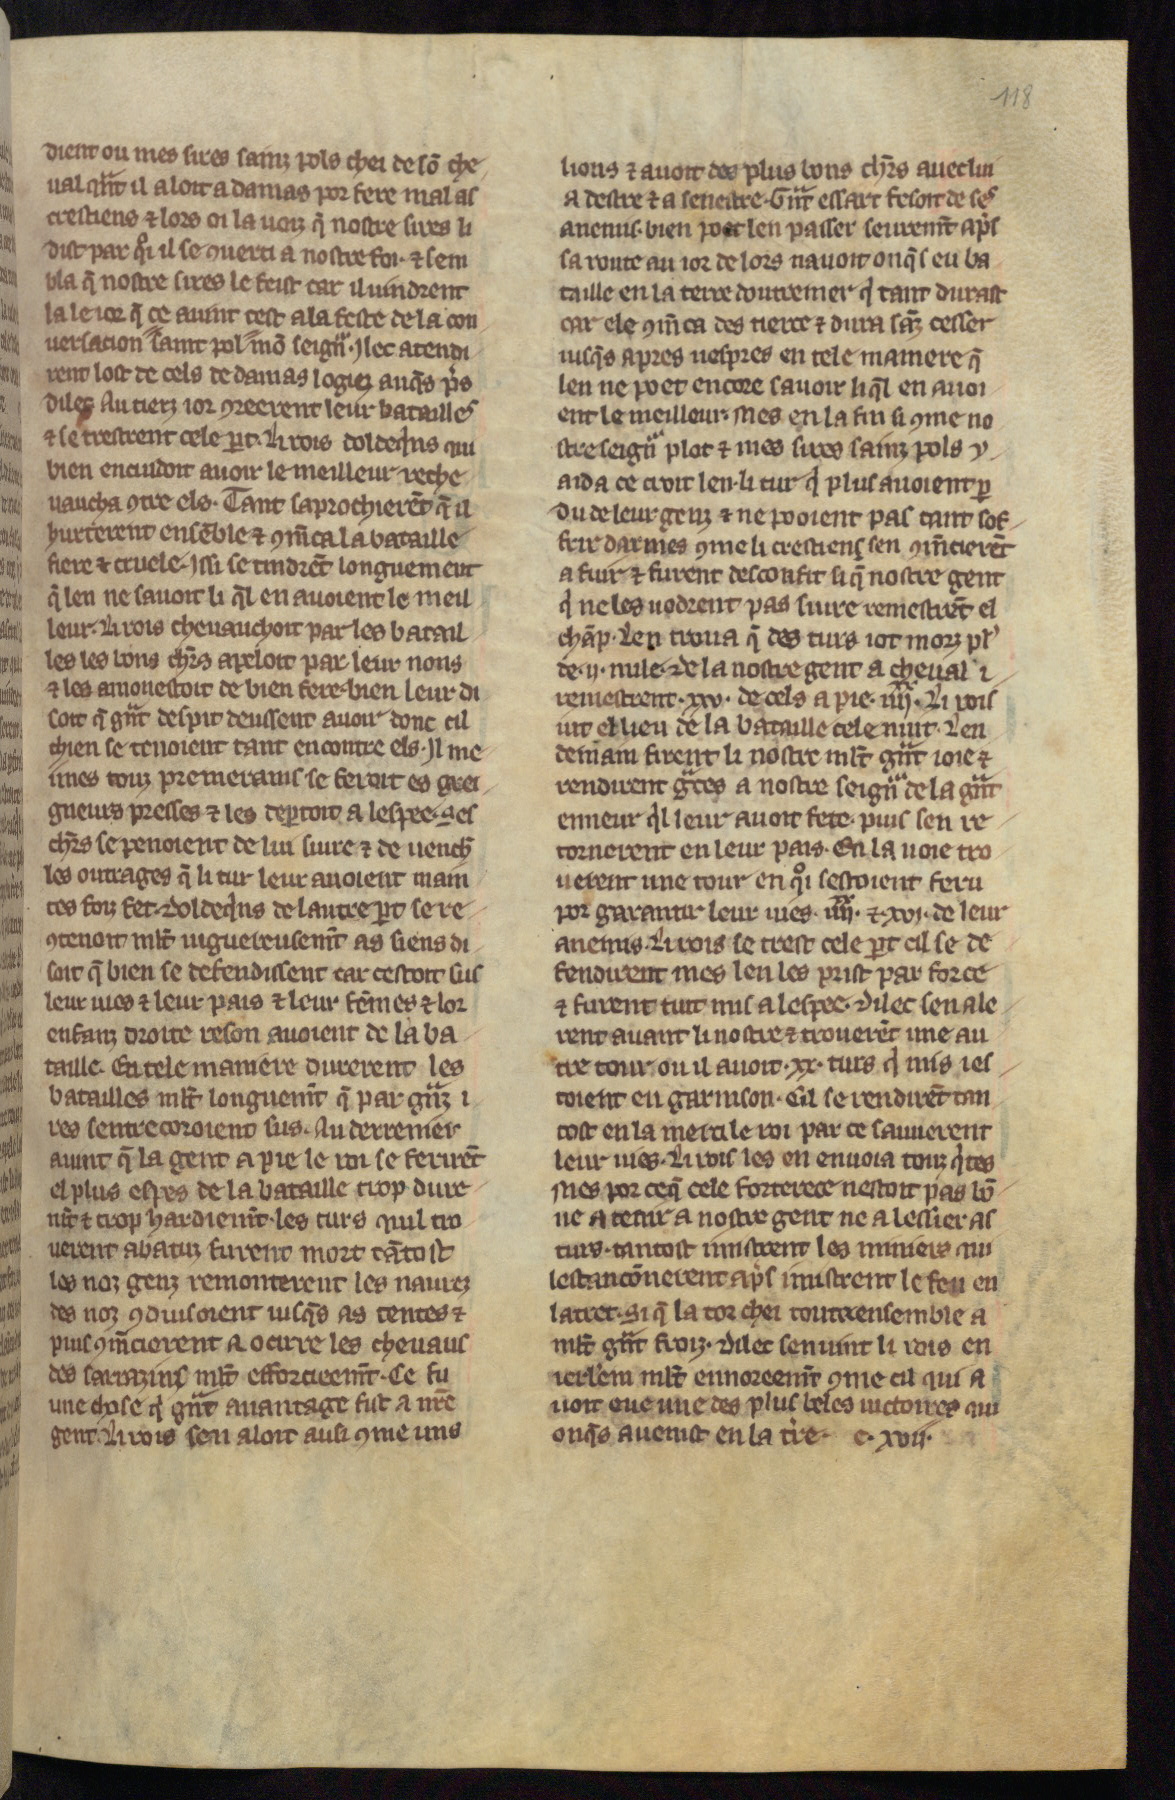 118
dient ou mes sires sainz pols chei de sō che
ual q̄nt il aloit a damas por fere mal as
crestiens ⁊ lors oi la uoiz q̄ nostre sires li
dist par qͦi il se ꝯuerti a nostre foi· ⁊ sem
bla q̄ nostre sires le feist car il uindrent
la le ior q̄ ce auint cest a la feste de la con
uersacion saint pol mō seignͬ· Jlec atendi
rent lost de cels de damas logiez auq̄s p̄s
diles Au tierz ior ꝯreerent leur batailles
⁊ se trestrent cele ꝑt· Li rois doldeq̄ns qui
bien encuidoit auoir le meilleur reche
uaucha ꝯtre els· Tant saprochierēt q̄ il
hurterent ensēble ⁊ ꝯm̄ca la bataille
fiere ⁊ cruele· Jssi se tindrēt longuement
q̄ len ne sauoit li q̄l en auoient le meil
leur· Li rois cheuauchoit par les batail
les les bons chr̄s apeloit par leur nons
⁊ les amonestoit de bien fere· bien leur di
soit q̄ gͣnt despit deussent auoir donc cil
chien se tenoient tant encontre els· Jl me
imes touz premerains se feroit es grei
gneurs presses ⁊ les deꝑtoit a lespee· Ses
chr̄s se penoient de lui siure ⁊ de uench̄
les outrages q̄ li tur leur auoient main
tes foiz fet· Doldeq̄ns de lautre ꝑt se re
ꝯtenoit ml̄t uiguereusem̄t as siens di
soit q̄ bien se defendissent car cestoit sus
leur uies ⁊ leur pais ⁊ leur fēmes ⁊ lor
enfanz droite reson auoient de la ba
taille· En tele maniere durerent les
batailles ml̄t longuem̄t q̄ par gͣnz i
res sentrecoroient sus· Au derrenier
auint q̄ la gent a pie le roi se ferirēt
el plus espes de la bataille trop dure
m̄t ⁊ trop hardiem̄t· les turs quil tro
uerent abatuz furent mort tātost
les noz genz remonterent les naurez
des noz ꝯduisoient iusq̄s as tentes ⁊
puis ꝯm̄cierent a ocirre les cheuaus
des sarrazins ml̄t efforcieem̄t· Ce fu
une chose q̄ gͣnt auantage fist a nr̄e
gent· Li rois sen aloit ausi ꝯme uns
lions ⁊ auoit des plus bons chr̄s auec lui
a destre ⁊ a senestre· Gͣnt essart fesoit de ses
anemis· bien poet len passer seurem̄t ap̄s
sa route au ior de lors nauoit onq̄s eu ba
taille en la terre doutremer q̄ tant durast
car ele ꝯm̄ca des tierce ⁊ dura sāz cesser
iusq̄s apres uespres en tele maniere q̄
len ne poet encore sauoir li q̄l en auoi
ent le meilleur· Mes en la fin si ꝯme no
stre seignͬ plot ⁊ mes sires sainz pols y
aida ce croit len· li tur q̄ plus auoient ꝑ
du de leur genz ⁊ ne pooient pas tant sof
frir darmes ꝯme li crestiens sen ꝯm̄cierēt
a fuir ⁊ furent desconfit si q̄ nostre gent
q̄ ne les uodrent pas siure remestrēt el
chāp· Len troua q̄ des turs iot morz pl᾽
de ·ij· mile· De la nostre gent a cheual i
remestrent ·xxv· de cels a pie ·iiij· Li rois
iut el lieu de la bataille cele nuit· Len
demain firent li nostre ml̄t gͣnt ioie ⁊
rendirent gͣces a nostre seignͬ de la gͣnt
enneur q̄l leur auoit fete· puis sen re
tornerent en leur pais· En la uoie tro
uerent une tour en qͦi sestoient feru
por garantir leur uies ·iiij· ⁊ ·xvj· de leur
anemis· Li rois se trest cele ꝑt cil se de
fendirent mes len les prist par force
⁊ furent tuit mis a lespee· Dilec sen ale
rent auant li nostre ⁊ trouerēt une au
tre tour ou il auoit ·xx· turs q̄ mis ies
toient en garnison· Cil se rendirēt tan
tost en la merci le roi par ce sauuerent
leur uies· Li rois les en enuoia touz q̄tes
Mes por ce q̄ cele forterece nestoit pas bō
ne a tenir a nostre gent ne a lessier as
turs· tantost i mistrent les miniers qui
lestanconnerent ap̄s i mistrent le feu en
latret· Si q̄ la tor chei tout ensemble a
ml̄t gͣnt froiz· Dilec sen uint li rois en
ierl̄em ml̄t ennoreem̄t ꝯme cil qui a
uoit eue une des plus beles uictoires qui
onq̄s auenist en la tr̄e· c· xvij·